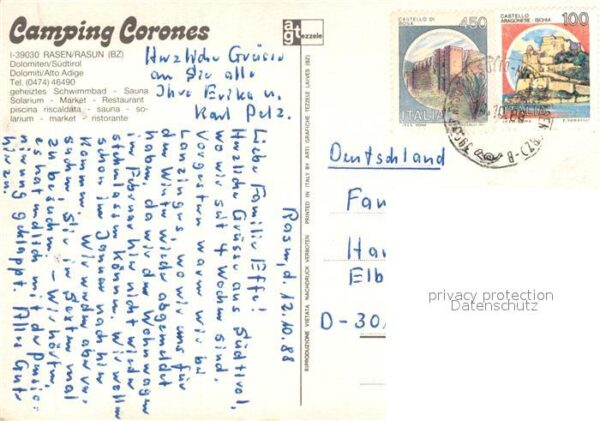 Camping Corones
I-39030 RASEN/RASUN (BZ)
Dolomiten/Südtirol
Dolomiti/Alto Adige
Tel. (0474) 46490
geheiztes Schwimmbad - Sauna
Solarium - Market - Restaurant
piscina riscaldata - sauna - so-
larium - market - ristorante
Herzliche Grüsse
an Sie alle
Ihre Erika u.
Karl Pelz.
Rasen, d. 12.10.88
Liebe Familie Effe!
Herzliche Grüsse aus Südtirol,
wo wir seit 4 Wochen sind.
Vorgestern waren wir bei
Lanzinger, wo wir uns für
den Winter wieder abgemeldet
haben, da wir den Wohnwagen
im Februar hier nicht wieder
stehnlassen können. Wir wollen
schon im Januar nach hier
kommen. Wir werden aber ver-
suchen, Sie im Herbst mal
zu besuchen. - Wir hörten,
es hat endlich mit der Pensio-
nierung geklappt. Alles Gute
hierzu.
agt tezzele
RIPRODUZIONE VIETATA NACHDRUCK VERBOTEN PRINTED IN ITALY BY ARTI GRAFICHE TEZZELE LAIVES (BZ)
CASTELLO DI
450
ITALIA
CASTELLO
ARAGONESE - ISCHIA
100
ITALIA
Deutschland
Fam
Han
Elb
D-30
privacy protection
Datenschutz